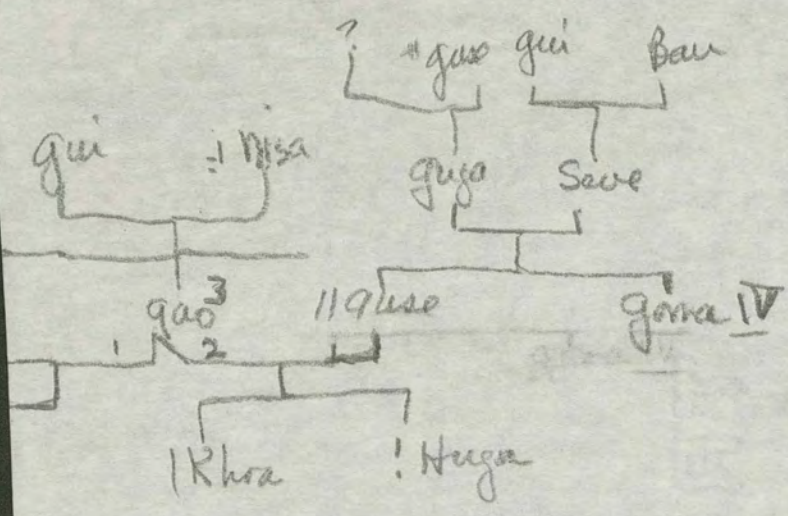 ? ǂguse gui Bau
gui ≠i Nisa
guga Save
gao³ //guse goma IV
1 2
|Khoa !Huga